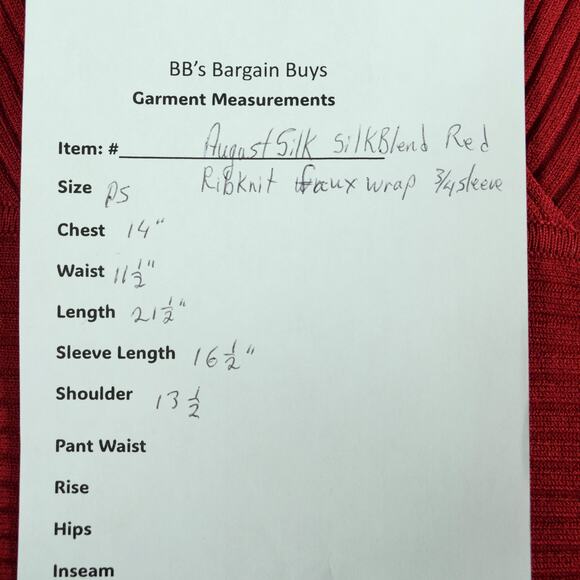 BB's Bargain Buys
Garment Measurements
Item: # August Silk SilkBlend Red
Ribknit faux wrap 3/4 sleeve
Size PS
Chest 14"
Waist 11 1/2"
Length 21 1/2"
Sleeve Length 16 1/2"
Shoulder 13 1/2
Pant Waist
Rise
Hips
Inseam